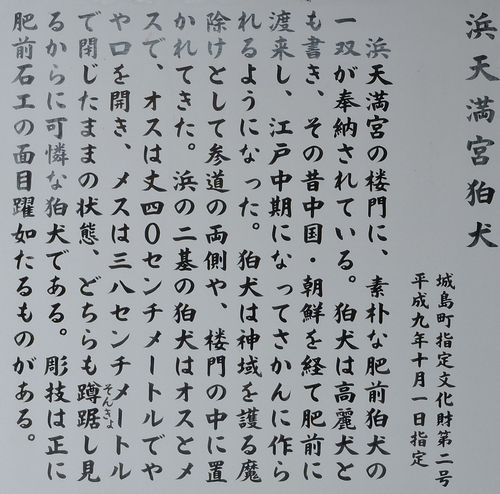 浜天満宮狛犬
城島町指定文化財第二号
平成九年十月一日指定
浜天満宮の楼門に、素朴な肥前狛犬の
一双が奉納されている。狛犬は高麗犬と
も書き、その昔中国・朝鮮を経て肥前に
渡来し、江戸中期になってさかんに作ら
れるようになった。狛犬は神域を護る魔
除けとして参道の両側や、楼門の中に置
かれてきた。浜の二基の狛犬はオスとメ
スで、オスは丈四〇センチメートルでや
や口を開き、メスは三八センチメートル
で閉じたままの状態、どちらも蹲踞し見
そんきょ
るからに可憐な狛犬である。彫技は正に
肥前石工の面目躍如たるものがある。